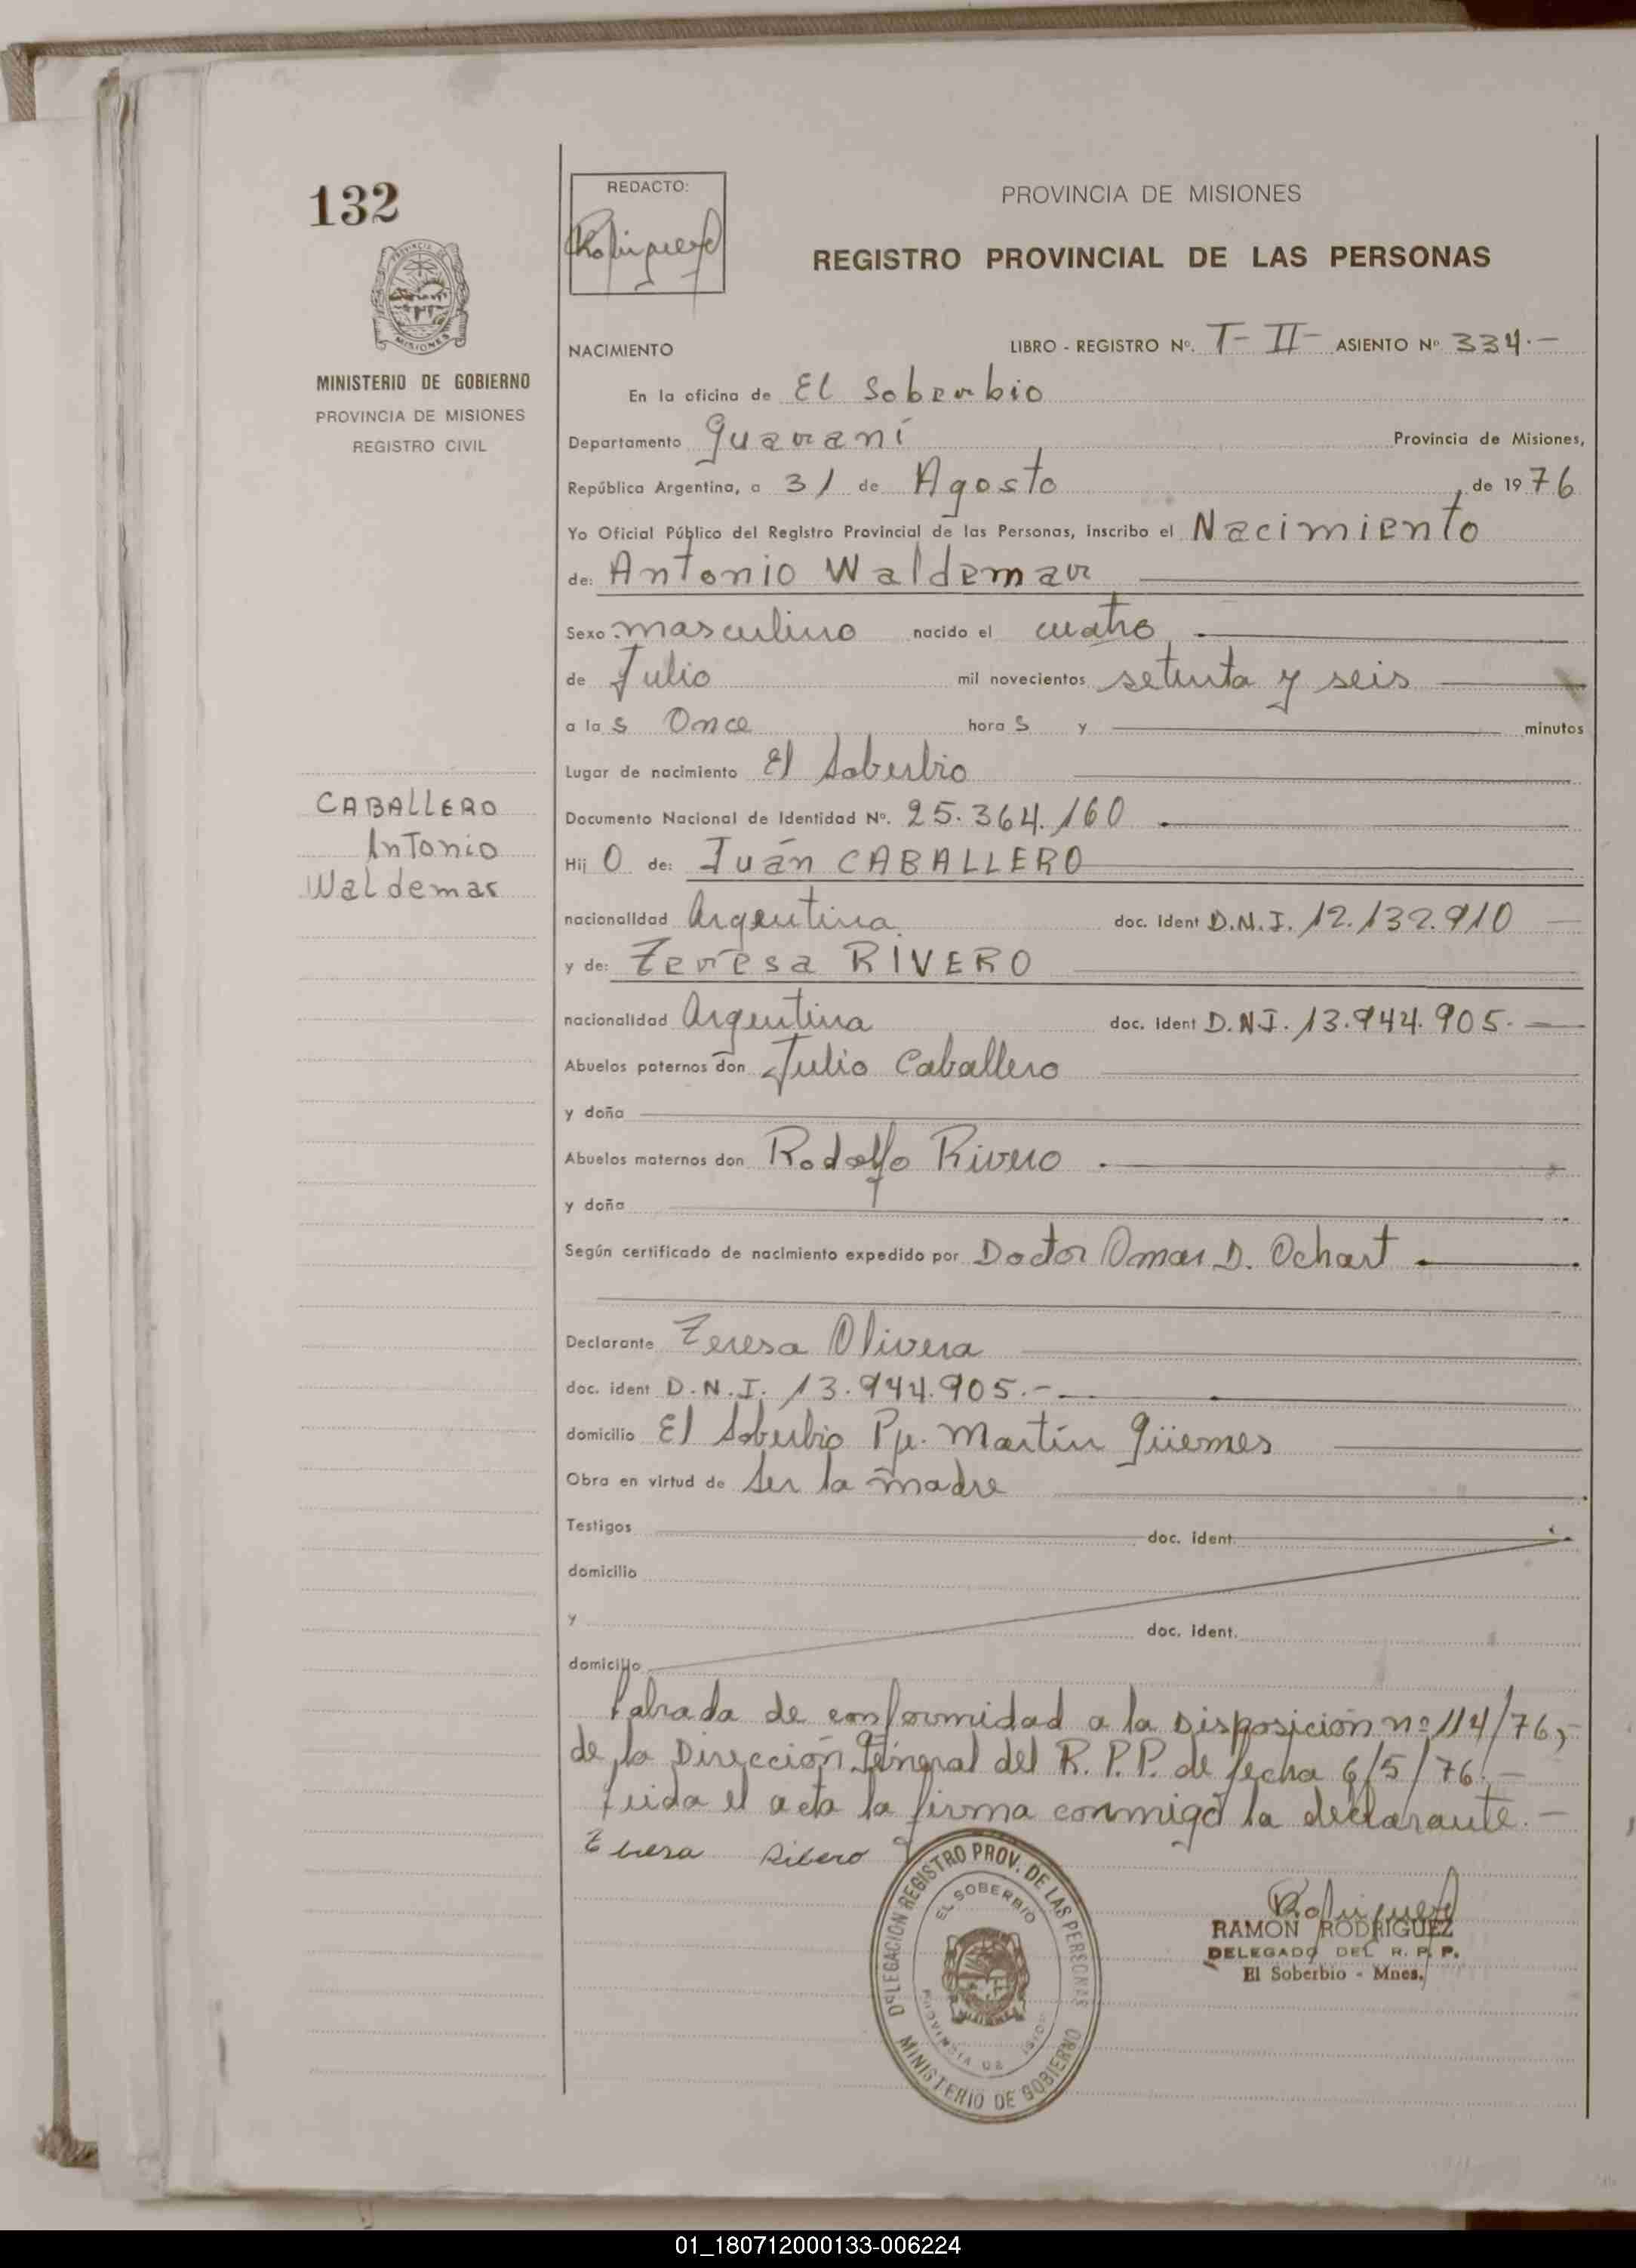 132
REDACTO:
PROVINCIA DE MISIONES
REGISTRO PROVINCIAL DE LAS PERSONAS
MINISTERIO DE GOBIERNO
PROVINCIA DE MISIONES
REGISTRO CIVIL
NACIMIENTO LIBRO - REGISTRO Nº. T- II- ASIENTO Nº 334.-
En la oficina de El Soberbio
Departamento Guaraní Provincia de Misiones,
República Argentina, a 31 de Agosto de 1976
Yo Oficial Público del Registro Provincial de las Personas, inscribo el Nacimiento
de: Antonio Waldemar
Sexo masculino nacido el cuatro
de Julio mil novecientos setenta y seis
a las Once horas y minutos
Lugar de nacimiento El Soberbio
Documento Nacional de Identidad Nº. 25.364.160
CABALLERO
Antonio
Waldemar
Hijo de: Juán CABALLERO
nacionalidad Argentina doc. ident D.N.I. 12.132.910
y de: Teresa RIVERO
nacionalidad Argentina doc. ident D.N.I. 13.944.905.-
Abuelos paternos don Julio Caballero
y doña
Abuelos maternos don Rodolfo Rivero
y doña
Según certificado de nacimiento expedido por Doctor Omar D. Ochart
Declarante Teresa Olivera
doc. ident D.N.I. 13.944.905.-
domicilio El Soberbio Pje. Martín Güemes
Obra en virtud de Ser la madre
Testigos doc. ident.
domicilio
y doc. ident.
domicilio
Labrada de conformidad a la Disposición nº 114/76,-
de la Dirección General del R.P.P. de fecha 6/5/76.-
Leida el acta la firma conmigo la declarante.-
Teresa Ribero
DELEGACION REGISTRO PROV. DE LAS PERSONAS
EL SOBERBIO
PROVINCIA DE
MINISTERIO DE GOBIERNO
RAMON RODRIGUEZ
DELEGADO DEL R. P. P.
El Soberbio - Mnes.
01_180712000133-006224